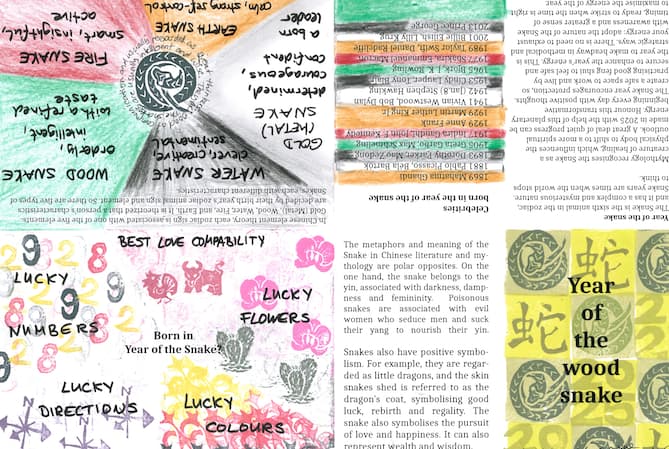 Year of the snake
The Snake is the sixth animal in the zodiac,
and it has a complex and mysterious nature.
Snake years are times when the world stops
to think.
Mythology recognises the Snake a
creature of healing which influences the
physical body to shift to a more spiritual
outlook. A great deal of quiet progress can be
made in 2025 with the help of this planetary
energy. Honour this transformative
beginning every day with thoughts.
The Snake year encourages protection, so
create a safe space to work and live by
gathering good feng shui to feel safe and
secure to enhance the year's energy. This is
the year to make headway in methodical and
strategic ways. There's no need to exhaust
your energy: adopt the nature of the Snake
with awareness and a greater sense of
timing, ready to strike when the time is right
to maximise the energy of the Year
Celebrities
born in the year of the snake
1869 Mahatma Ghandi
1881 Pablo Picasso, Bela Bartok
1893 Dorothy Parker, Mao Zedong
1905 Greta Garbo, Max Schmeling
1917 Indira Gandhi, John F. Kennedy
1929 Anne Frank
1929 Martin Luther King Jr
1941 Vivian Westwood, Bob Dylan
1942 (Jan 8) Stephen Hawking
1953 Cyndi Lauper,
1965 Björk, J. K. Rowling
1977 Shakira, Emmanuel Macron
1989 Taylor Swift, Daniel Radcliffe
2001 Billie Eilish, Lilly Krug
2013 Prince George
In Chinese element theory, each zodiac sign is associated with one of the five elements:
Gold (Metal), Wood, Water, Fire, and Earth. It is theorized that a person's characteristics
are decided by their birth year's zodiac animal sign and element. So there are five types of
Snakes, each with different characteristics.
WATER SNAKE
clever, creative,
sentimental
WOOD SNAKE
orderly,
intelligent,
with a refined
taste
GOLD
(METAL)
SNAKE
determined,
courageous,
confident
a born
leader
FIRE SNAKE
smart, insightful,
active
EARTH SNAKE
calm, strong self-control
BEST LOVE COMPABILITY
LUCKY
NUMBERS
LUCKY
FLOWERS
Born in
Year of the Snake?
LUCKY
DIRECTIONS
LUCKY
COLOURS
The metaphors and meaning of the
Snake in Chinese literature and my-
thology are polar opposites. On the
one hand, the snake belongs to the
yin, associated with darkness, damp-
ness and femininity. Poisonous
snakes are associated with evil
women who seduce men and suck
their yang to nourish their yin.
Snakes also have positive symbo-
lism. For example, they are regar-
ded as little dragons, and the skin
snakes shed is referred to as the
dragon's coat, symbolising good
luck, rebirth and regality. The
snake also symbolises the pursuit
of love and happiness. It can also
represent wealth and wisdom.
蛇
蛇
Year
of
the
wood
snake